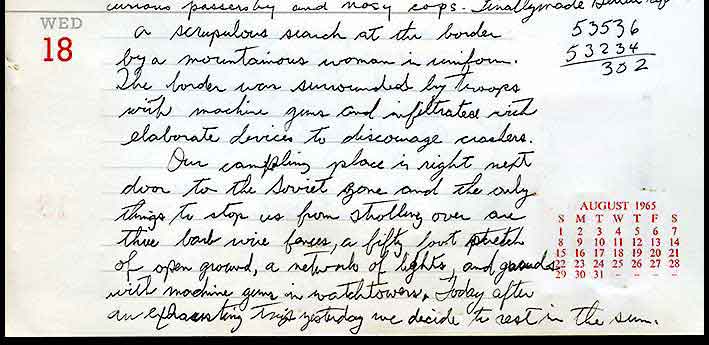 curious passersby and nosy cops. Finally made
WED
18
a scrupulous search at the border
by a mountainous woman in uniform.
The border was surrounded by troops
with machine guns and infiltrated with
elaborate devices to discourage crashers.
Our campling place is right next
door to the Soviet zone and the only
things to stop us from strolling over are
three barb wire fences, a fifty foot stretch
of open ground, a network of lights, and guards
with machine guns in watchtowers. Today after
an exhausting trip yesterday we decide to rest in the sun.
53536
53234
302
AUGUST 1965
S M T W T F S
1 2 3 4 5 6 7
8 9 10 11 12 13 14
15 16 17 18 19 20 21
22 23 24 25 26 27 28
29 30 31 - - - -